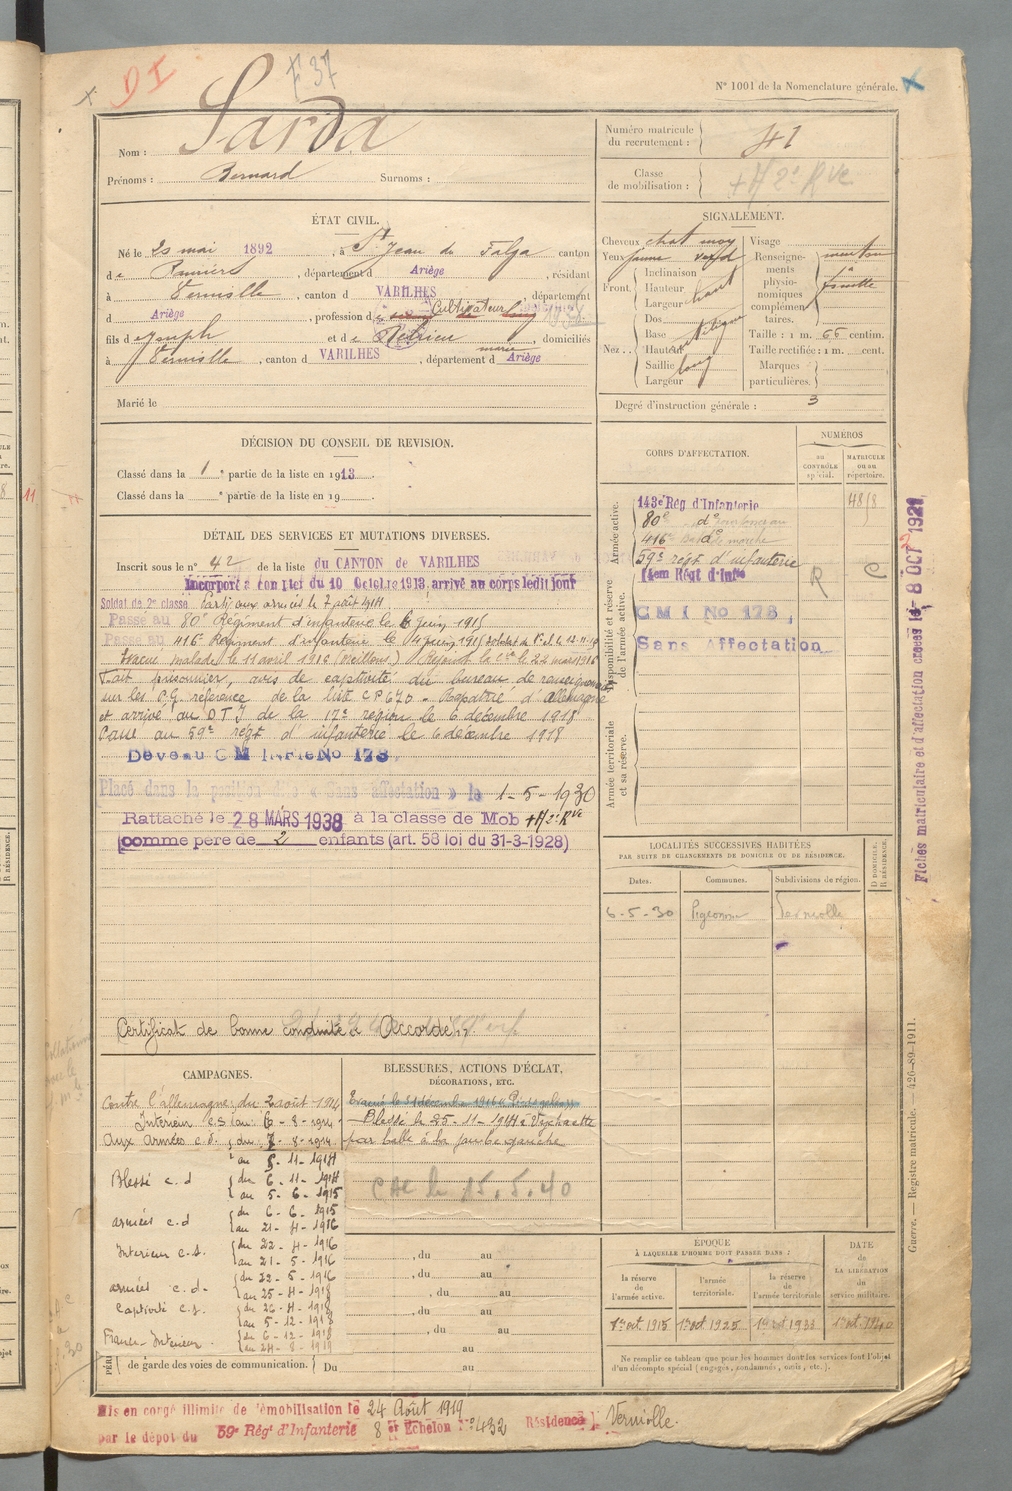 D I
F 37
N° 1001 de la Nomenclature générale.
Nom : Sarda
Prénoms : Bernard Surnoms :
Numéro matricule du recrutement : 41
Classe de mobilisation :
ÉTAT CIVIL.
Né le 20 mai 1892, à St Jean du Falga canton
de Pamiers, département d Ariège, résidant
à Verniolle, canton d VARILHES département
d Ariège, profession de Cultivateur
fils de Joseph et de, domiciliés
à Verniolle, canton d VARILHES, département d Ariège
Marié le
SIGNALEMENT.
Cheveux chat moy
Yeux jaune verd
Front. Inclinaison
Hauteur haut
Largeur
Nez. Dos
Base
Hauteur
Saillie long
Largeur
Visage
Renseignements physionomiques complémentaires. menton à fossette
Taille : 1 m. 66 centim.
Taille rectifiée : 1 m. cent.
Marques particulières.
Degré d'instruction générale : 3
DÉCISION DU CONSEIL DE REVISION.
Classé dans la 1e partie de la liste en 1913.
Classé dans la e partie de la liste en 19
DÉTAIL DES SERVICES ET MUTATIONS DIVERSES.
Inscrit sous le n° 42 de la liste du CANTON de VARILHES
Incorporé à compter du 10 Octobre 1913, arrivé au corps ledit jour
Soldat de 2e classe. Parti aux armées le 7 août 1914.
Passé au 80e Régiment d'infanterie le 6 juin 1915
Passé au 416e Régiment d'infanterie le 4 juin 1915
Evacué malade le 11 avril 1916 (oreillons) Rejoint la Cie le 22 1916
Fait prisonnier, avis de captivité du bureau de renseignements
sur les P.G. référence de la liste CP 670. Rapatrié d'Allemagne
et arrivé au DTI de la 17e région le 6 décembre 1918
Passé au 59e régt d'infanterie le 6 décembre 1918
Dévolu CM Infie No 178.
Placé dans la position dite « Sans affectation » le 1-5-1930
Rattaché le 28 MARS 1938 à la classe de Mob
comme père de 2 enfants (art. 58 loi du 31-3-1928)
Certificat de bonne conduite Accordé
CORPS D'AFFECTATION.
NUMÉROS
au CONTRÔLE spécial.
MATRICULE OU AU répertoire.
Armée active.
143e Rég d'Infanterie 4818
80e do
416e do de marche
59e régt d'infanterie
Disponibilité et réserve de l'armée active.
14em Régt d'Infie R C
C M I No 178,
Sans Affectation
Armée territoriale et sa réserve.
Fiches matriculaire et d'affectation créées le 8 OCT 1921
LOCALITÉS SUCCESSIVES HABITÉES
PAR SUITE DE CHANGEMENTS DE DOMICILE OU DE RÉSIDENCE.
Dates. Communes. Subdivisions de région. D DOMICILE. R RÉSIDENCE.
6-5-30 Verniolle
CAMPAGNES.
Contre l'allemagne: du 2 août 1914
Intérieur C.S. au 6-8-1914
Aux Armées c.d. du 7-8-1914
au 5-11-1914
Blessé c.d du 6-11-1914
au 5-6-1915
armées c.d du 6-6-1915
au 21-4-1916
Intérieur c.s. du 22-4-1916
au 21-5-1916
armées c.d. du 22-5-1916
au 25-4-1918
Captivité c.s. du 26-4-1918
au 5-12-1918
France-Intérieur du 6-12-1918
au 24-8-1919
BLESSURES, ACTIONS D'ÉCLAT, DÉCORATIONS, ETC.
Blessé le 25-11-1914 à Wytschaete
par balle à la jambe gauche
le 15.5.40
, du au
, du au
, du au
, du au
au
de garde des voies de communication. Du au
ÉPOQUE
À LAQUELLE L'HOMME DOIT PASSER DANS :
la réserve de l'armée active. l'armée territoriale. la réserve de l'armée territoriale
DATE de LA LIBÉRATION du service militaire.
1er oct. 1915 1er oct 1925 1er oct 1933 1er oct. 1940
Ne remplir ce tableau que pour les hommes dont les services font l'objet d'un décompte spécial (engagés, condamnés, omis, etc.).
Guerre. — Registre matricule. — 426-89-1911.
Mis en congé illimité de démobilisation le 24 Août 1919
par le dépôt du 59e Régt d'Infanterie 8 Echelon No 432 Résidence Verniolle.